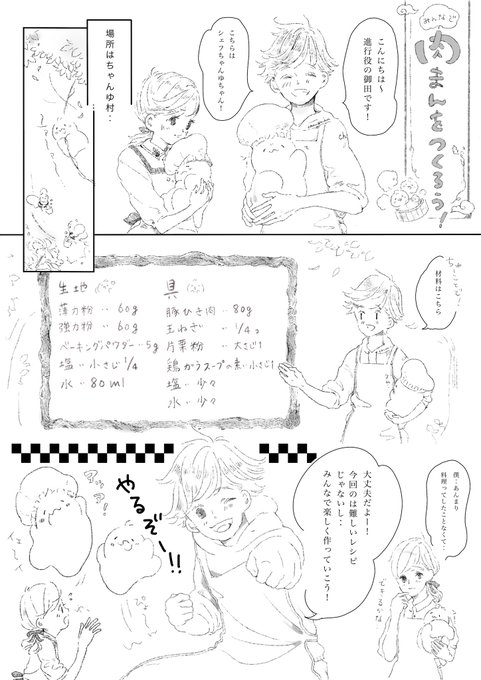 みんなで
肉まんをつくろう！
こんにちは〜
進行役の御田です！
こちらは
シェフちゃんゆちゃん！
場所はちゃんゆ村：
材料はこちら
生地
薄力粉 ‥ 60g
強力粉 ‥ 60g
ベーキングパウダー‥5g
塩 ‥ 小さじ1/4
水 ‥ 80ml
具
豚ひき肉 ‥ 80g
玉ねぎ ‥ 1/4コ
片栗粉 ‥ 大さじ1
鶏がらスープの素‥小さじ1
塩 ‥ 少々
水 ‥ 少々
僕：あんまり
料理ってしたことなくて：
できるかな
大丈夫だよー！
今回のは難しいレシピ
じゃないし：
みんなで楽しく作っていこう！
やるぞー!!
ぴょ
イェーイ